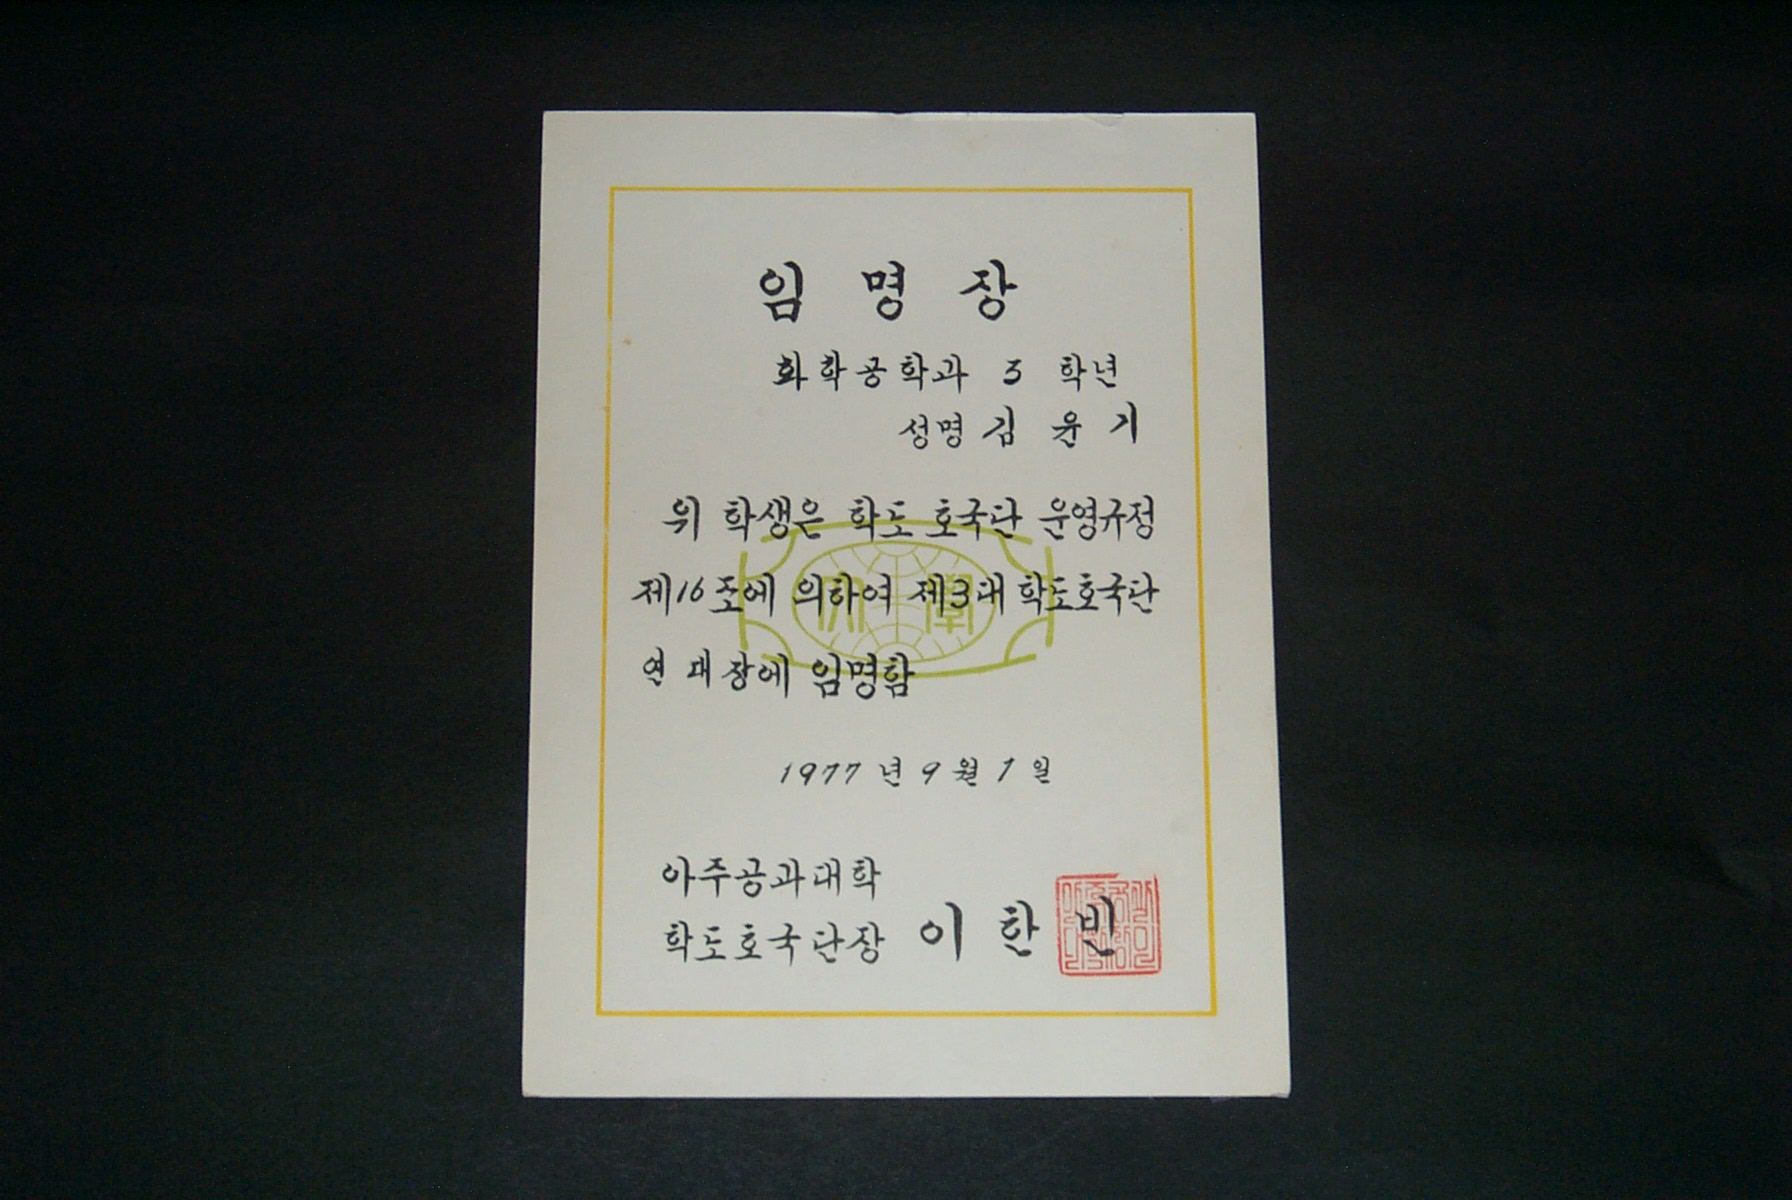 임 명 장
화학공학과 3 학년
성명 김 윤 기
위 학생은 학도 호국단 운영규정
제16조에 의하여 제3대 학도호국단
연 대 장에 임명함
1977 년 9 월 1 일
아주공과대학
학도호국단장 이 한 빈